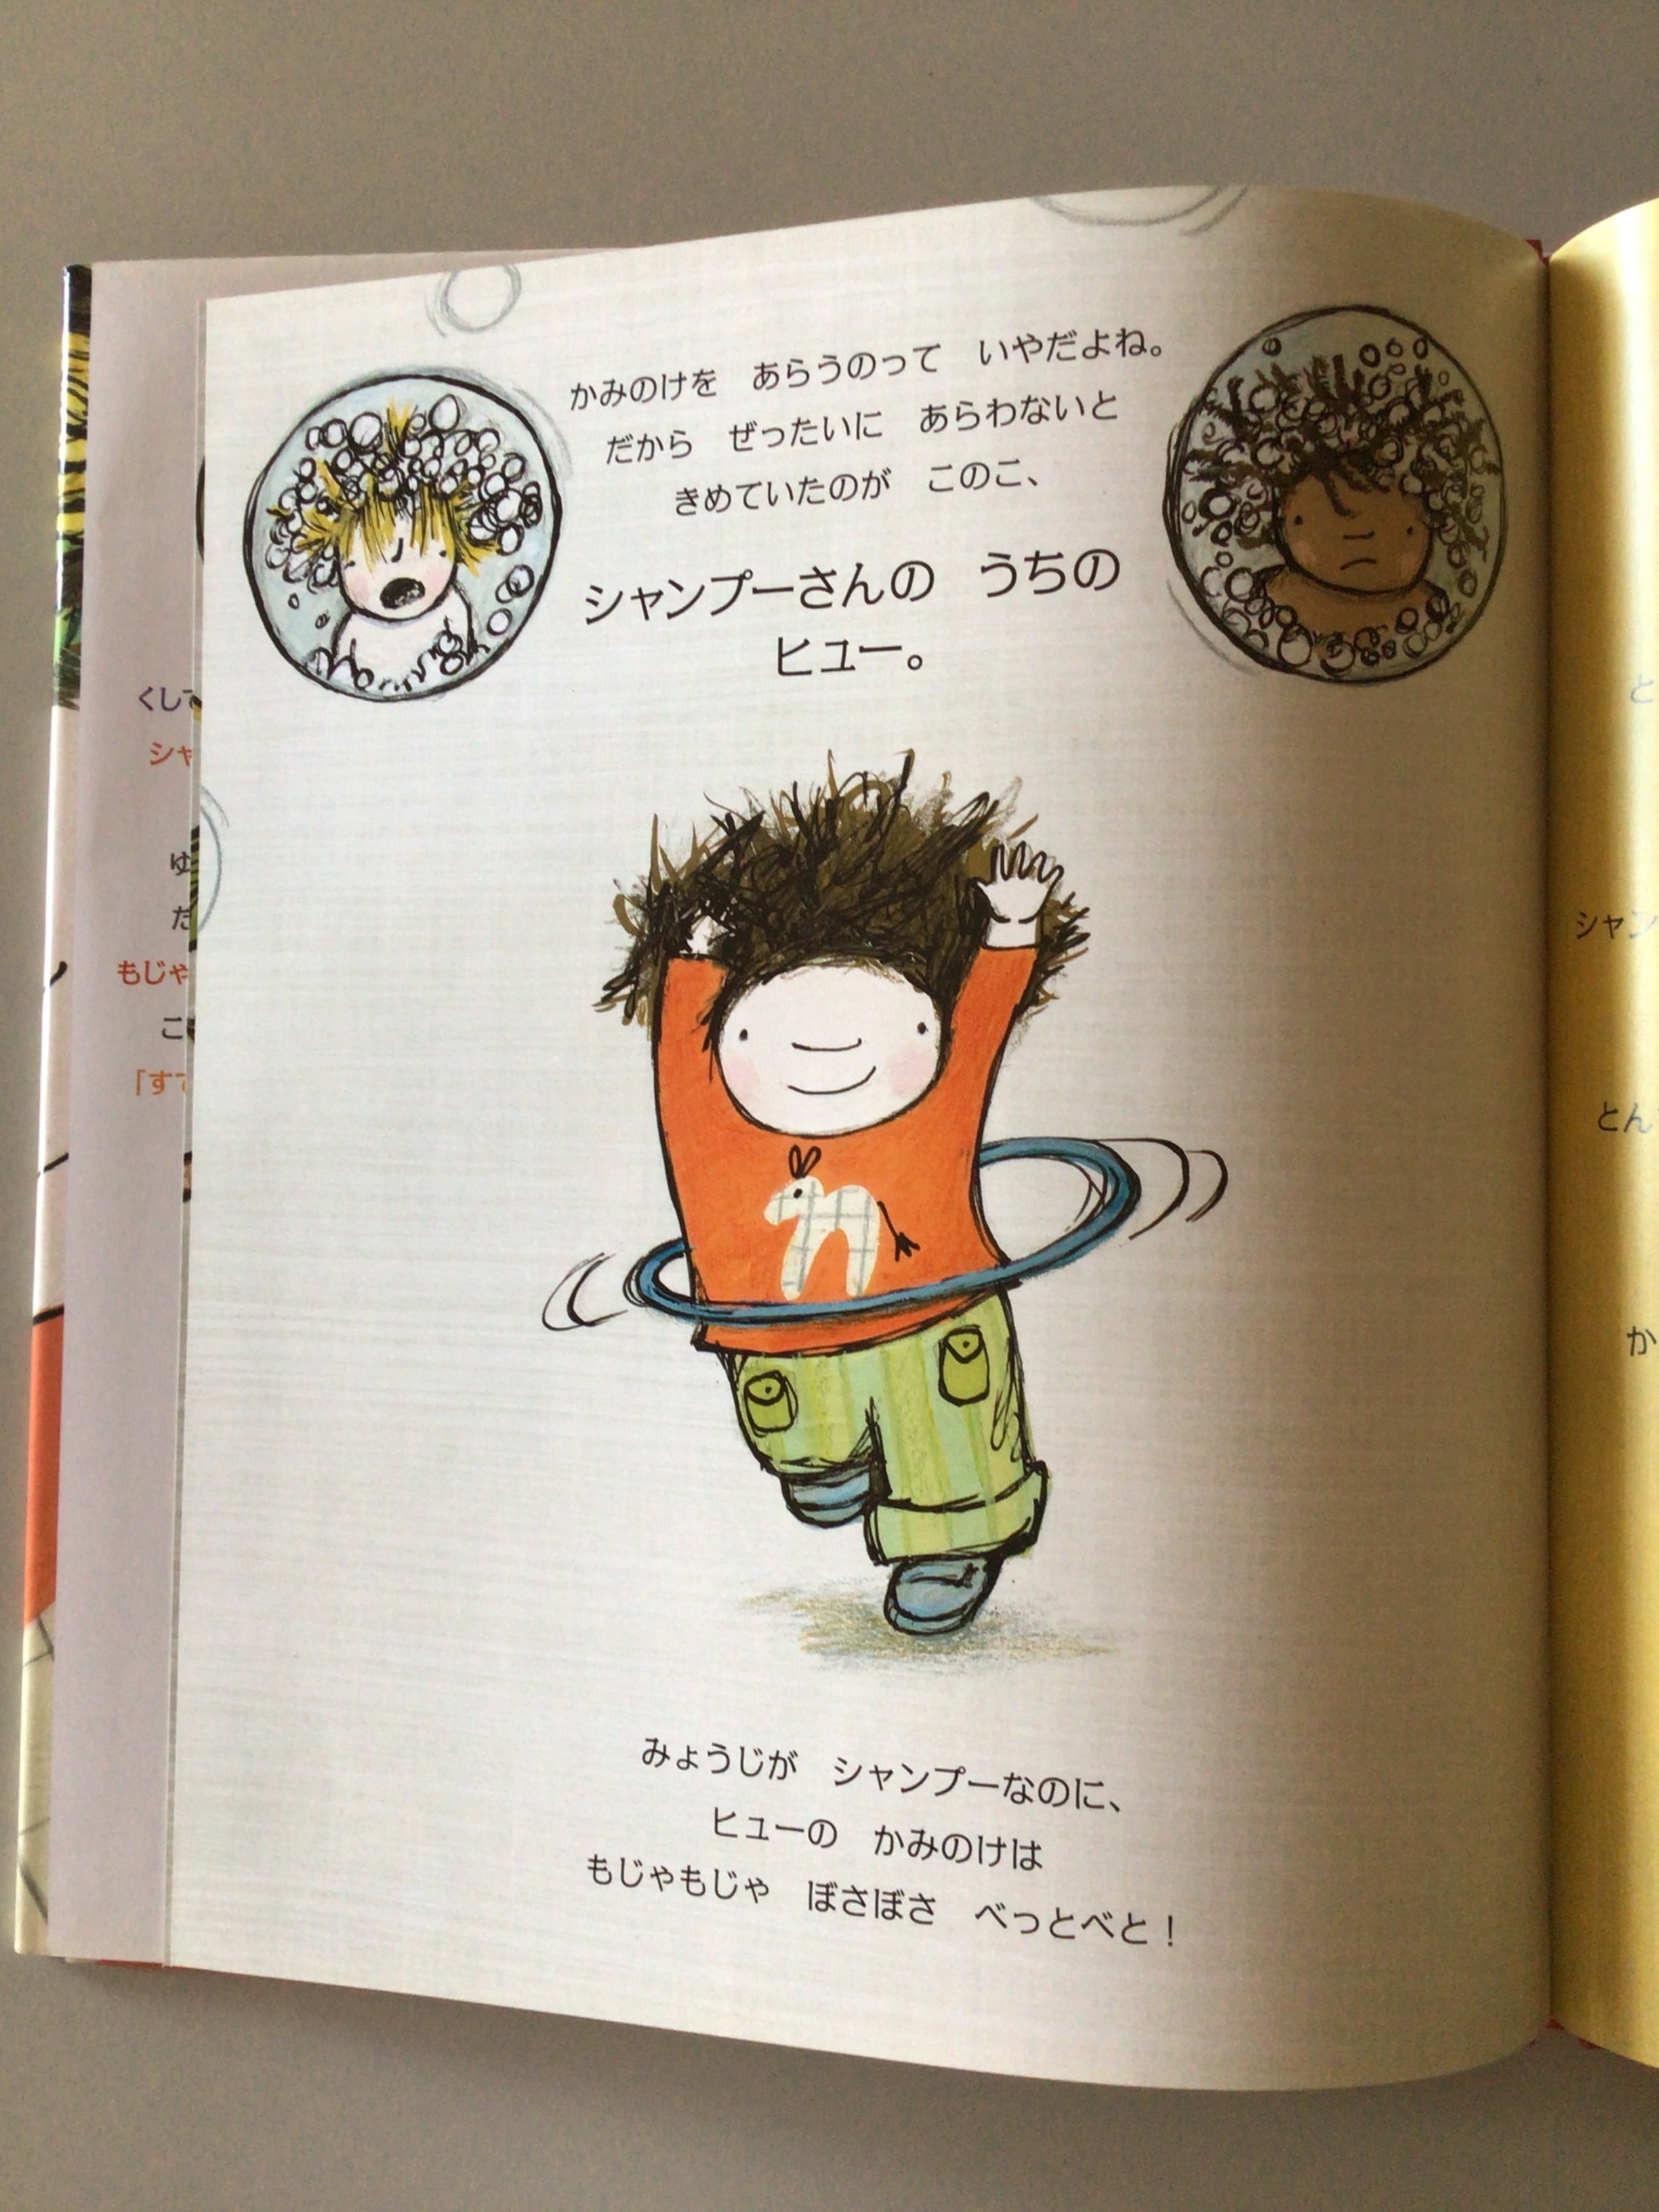 かみのけを　あらうのって　いやだよね。
だから　ぜったいに　あらわないと
きめていたのが　このこ、
シャンプーさんの　うちの
ヒュー。
みょうじが　シャンプーなのに、
ヒューの　かみのけは
もじゃもじゃ　ぼさぼさ　べっとべと！
くして
シャ
ゆ
だ
もじゃ
こ
「すて
と
シャン
とん
か